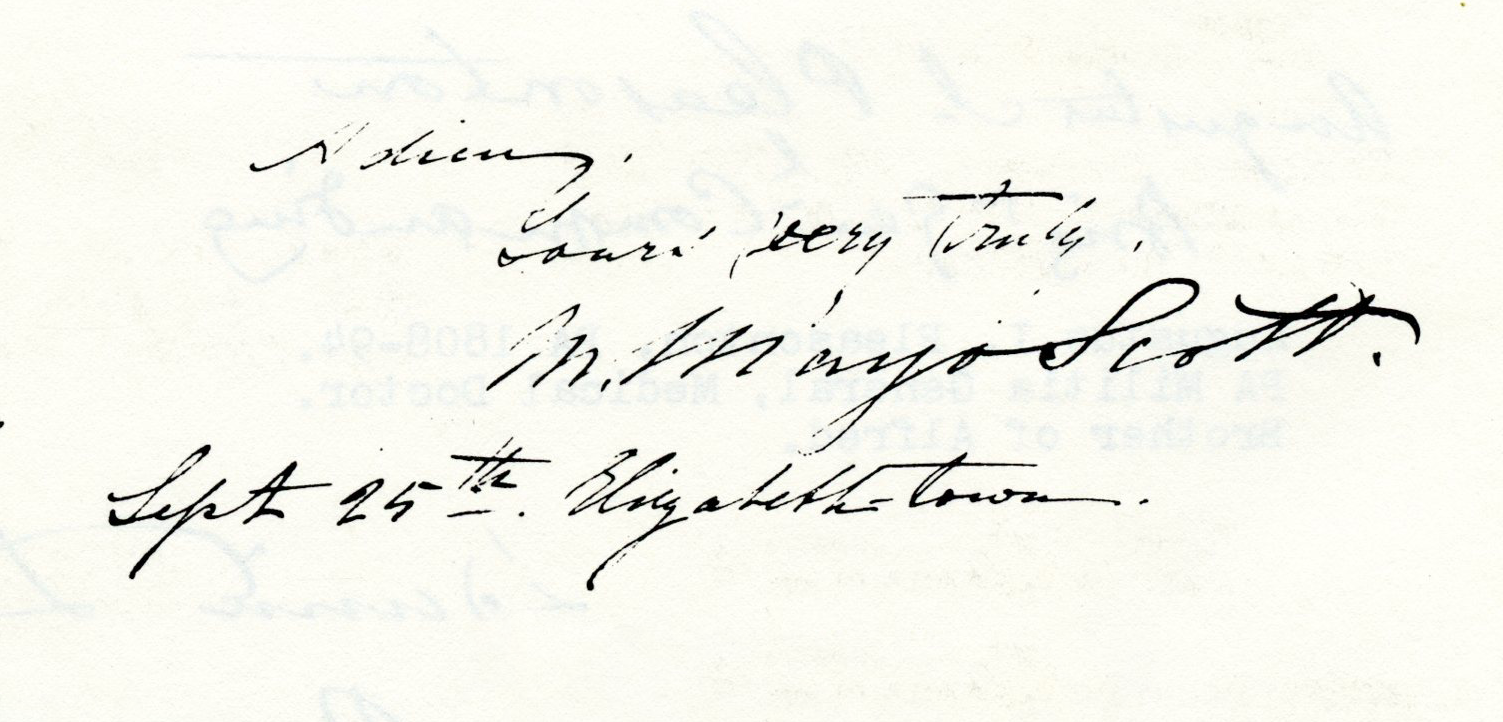 Adieu,
Yours very truly.
M. Mayo Scott.
Sept 25th. Elizabeth-town.